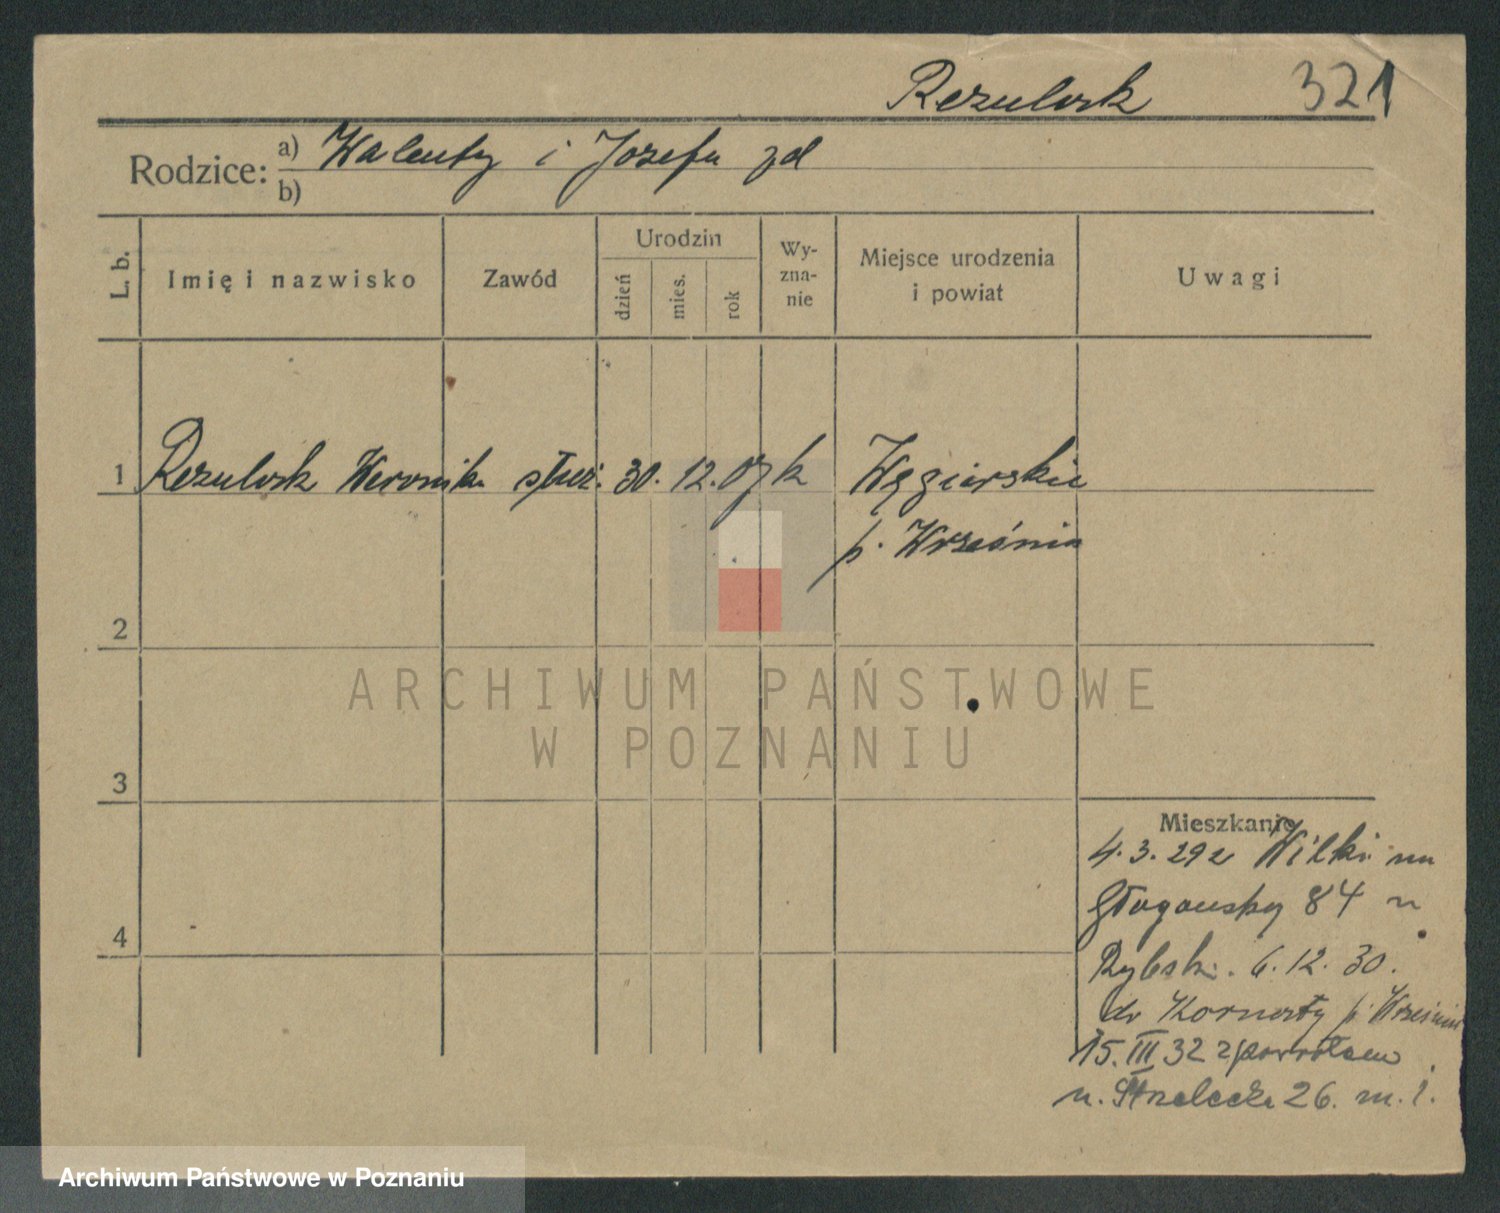 Rezulock 321
Rodzice: a) Walenty i Józefa zd
b)
L. b. Imię i nazwisko Zawód Urodzin dzień mies. rok Wy-zna-nie Miejsce urodzenia i powiat Uwagi
1 Weronika służ. 30. 12. 07 k Węgierskie
p. Września
2
ARCHIWUM PAŃSTWOWE
W POZNANIU
3
Mieszkanie
4. 3. 29 z Wilki na
Głogowskiej 84 u
4
Rybski. 6. 12. 30.
do p. Września
15. III 32 z powrotem
u. Strzelecka 26. m. 1.
Archiwum Państwowe w Poznaniu